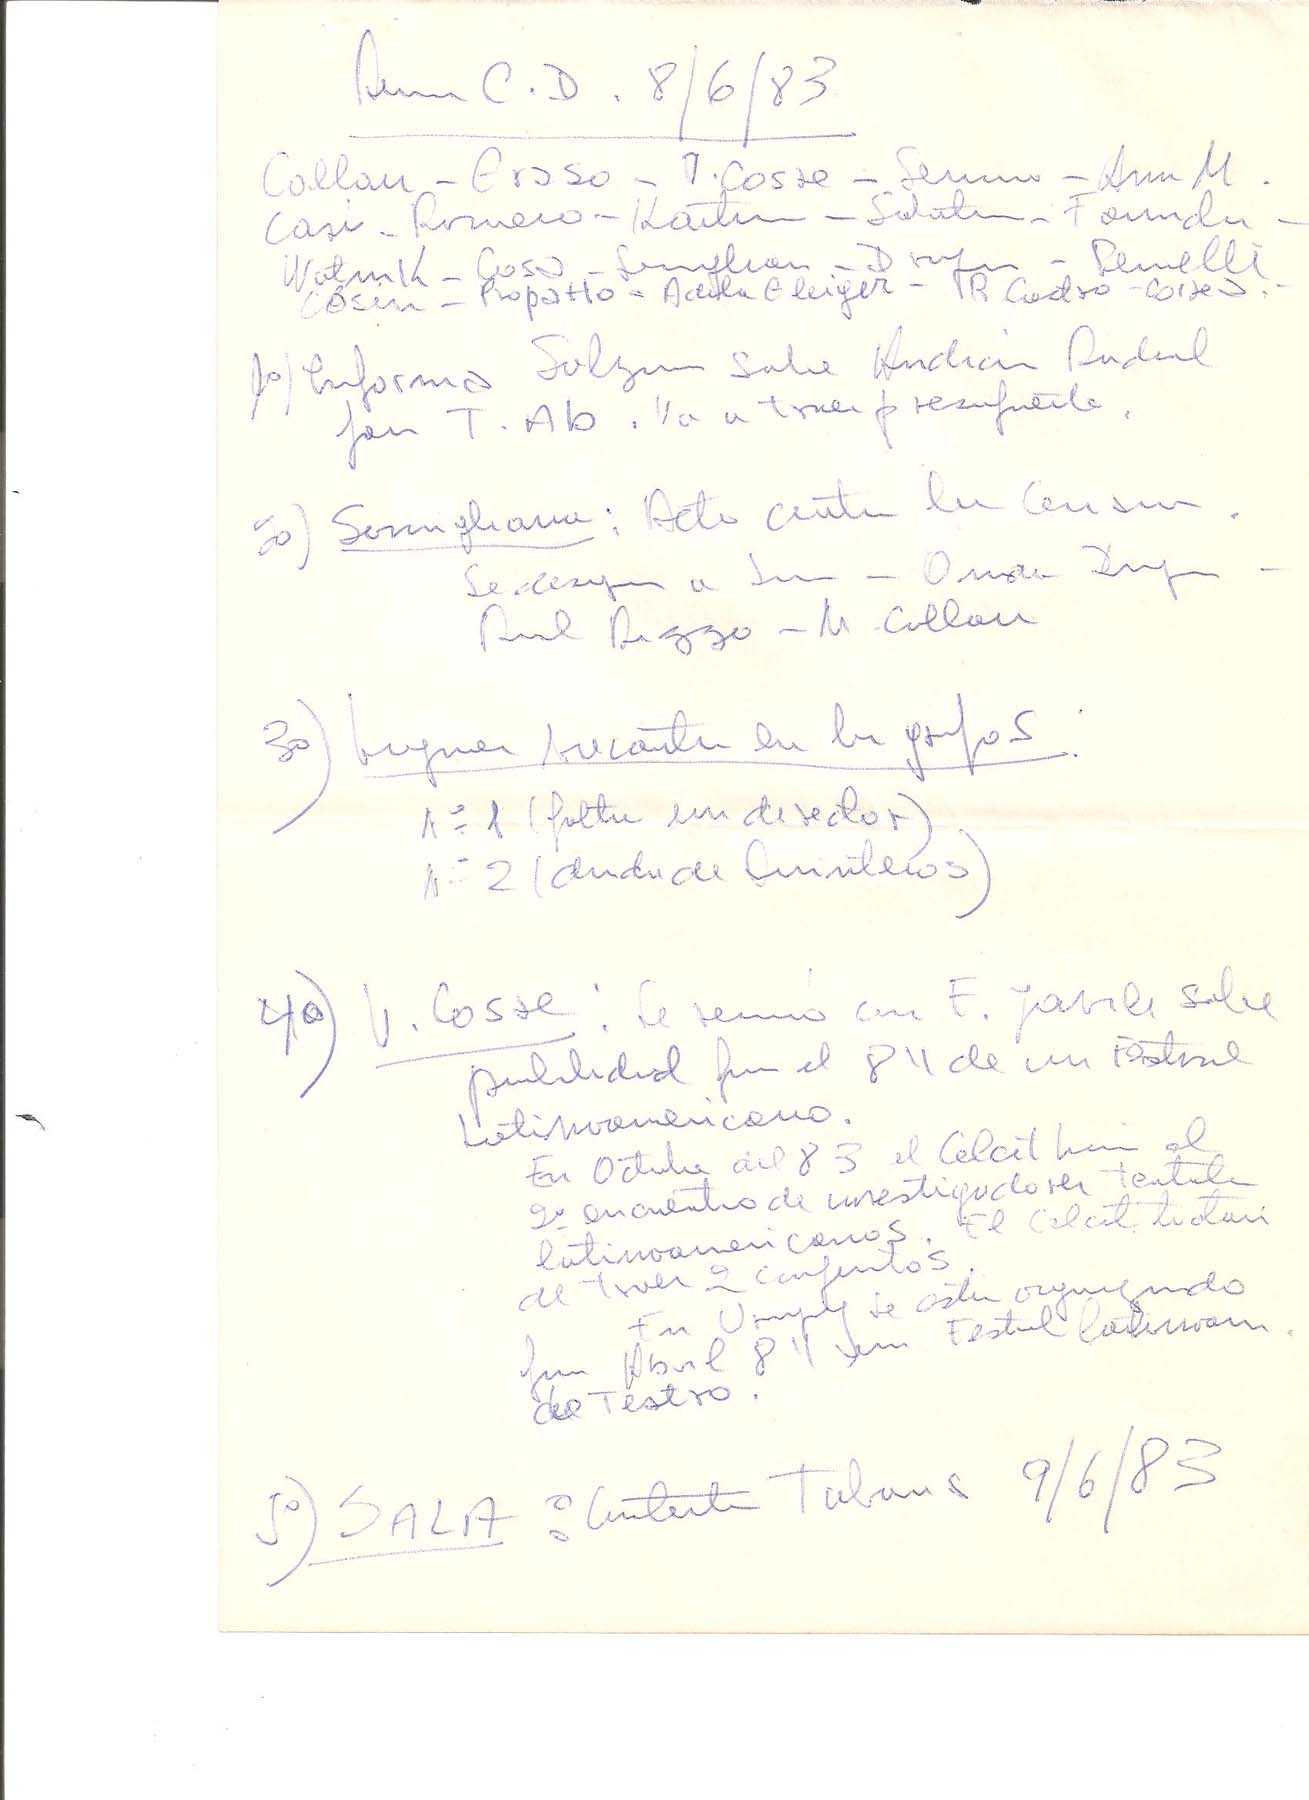 Reun C.D. 8/6/83
Collan - Eraso - V. Cosse - Serrano - Ana M.
Casó - Romero - Kartun - - -
Wolnik - Cosa - Somigliana - Drago - Penelli
Cosin - Propatto - Adela Gleiger - R. Castro - Correa. -
1º) Informa sobre
para T. Ab. Va a traer presupuesto.
2º) Somigliana: Acto contra la censura.
Se designa a - Omar Drago -
Raul Rizzo - M Collan
3º) en los grupos:
Nº 1 (falta un director)
Nº 2 (duda de Quinteros)
4º) V. Cosse: Se reunió con E. sobre
publicidad para el 84 de un Festival
Latinoamericano.
En Octubre del 83 el Celcit hará el
2º encuentro de investigadores teatrales
latinoamericanos. El Celcit tratará
de traer 2 conjuntos.
En Uruguay se está organizando
para Abril 84 un Festival latinoam.
de Teatro.
5º) SALA: Tabaris 9/6/83